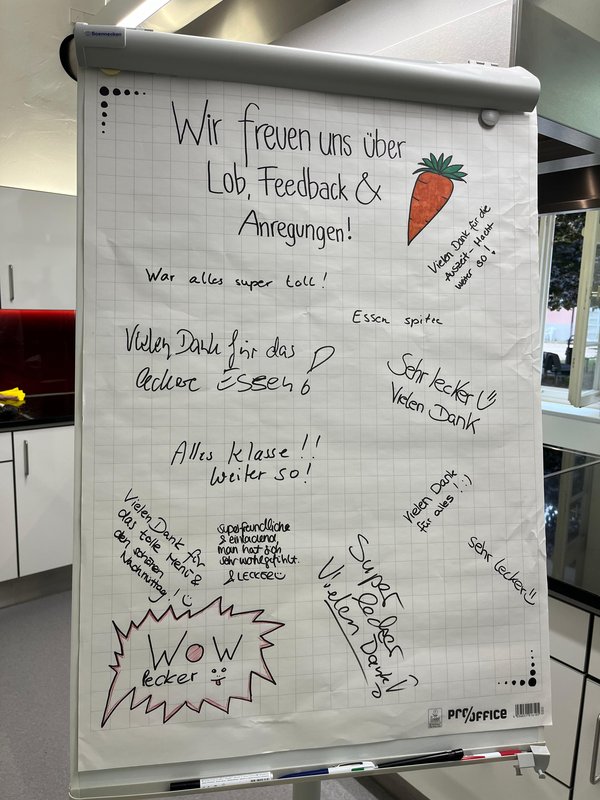 Franken
Wir freuen uns über
Lob, Feedback &
Anregungen!
Vielen Dank für die
Auszeit - Macht
weiter so!
War alles super toll!
Essen spitze
Vielen Dank für das
leckere ESSEN!
Sehr lecker
Vielen Dank
Alles klasse!!
weiter so!
Vielen Dank
für alles! :)
Vielen Dank für
das tolle Menü &
den schönen
Nachmittag!
superfreundliche
& einladend,
man hat sich
sehr wohlgefühlt.
& LECKER
sehr lecker
Super
lecker
Vielen Danke
WOW
lecker
PRO/OFFICE